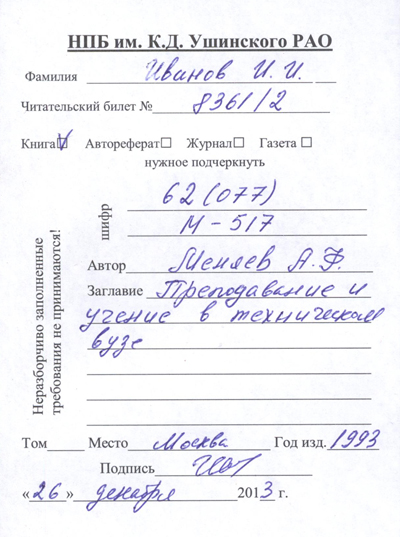 НПБ им. К.Д. Ушинского РАО
Фамилия Иванов И. И.
Читательский билет № 8361/2
Книга☑ Автореферат☐ Журнал☐ Газета☐
нужное подчеркнуть
шифр
62(077)
М-517
Неразборчиво заполненные
требования не принимаются!
Автор Меняев А.Ф.
Заглавие Преподавание и
учение в техническом
вузе
Том Место Москва Год изд. 1993
Подпись
«26» декабря 2013 г.